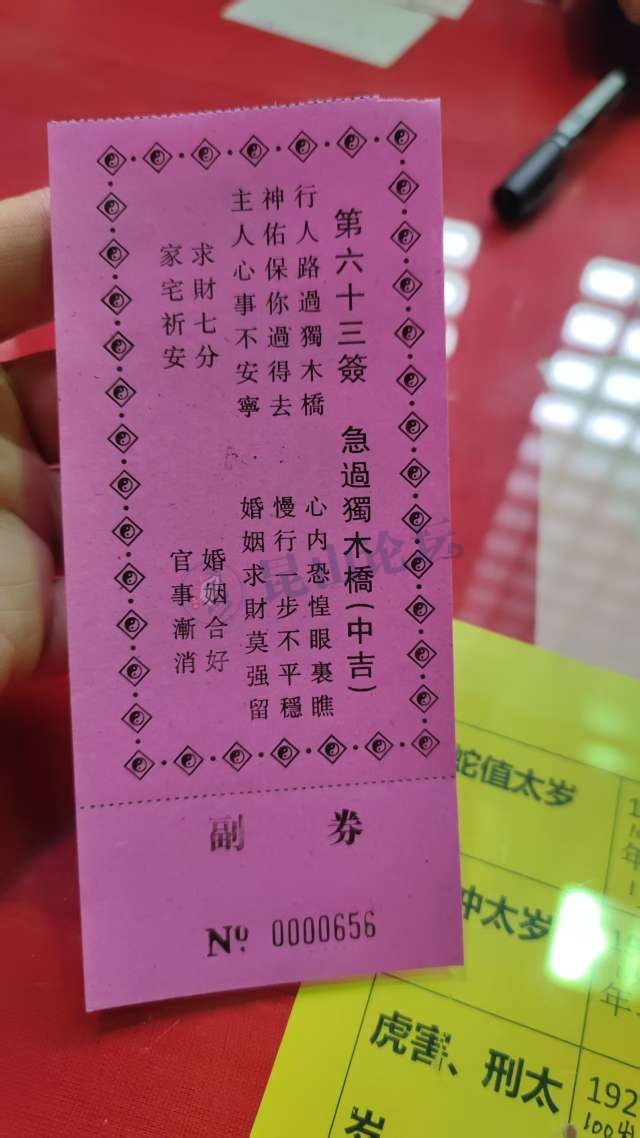 第六十三簽 急過獨木橋(中吉)
行人路過獨木橋 心内恐惶眼裏瞧
神佑保你過得去 慢行一步不平穩
主人心事不安寧 婚姻求財莫强留
求財七分 婚姻合好
家宅祈安 官事漸消
副 券
No. 0000656
昆山论坛
蛇值太岁
冲太岁
虎害、刑太岁
192
年
年